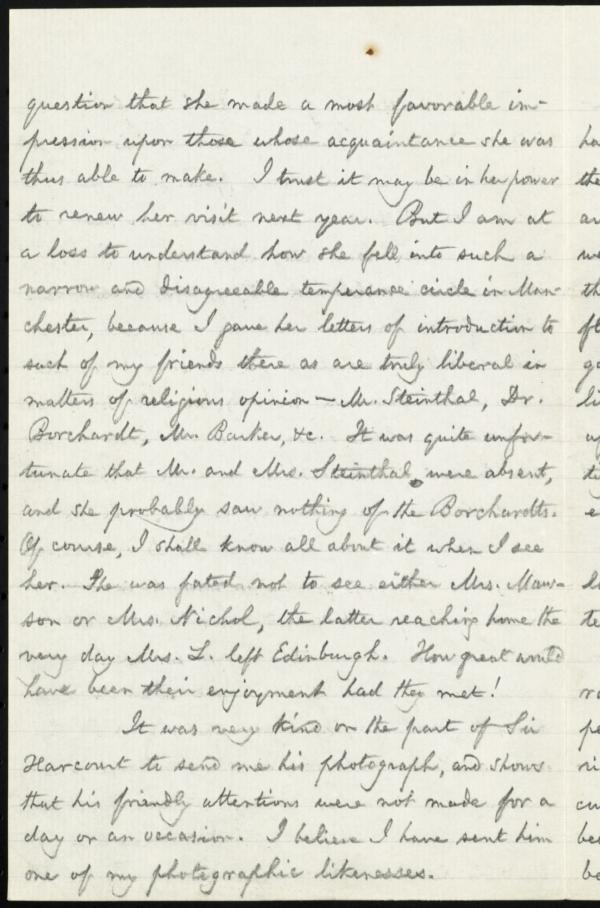 question that she made a most favorable im-
pression upon those whose acquaintance she was
thus able to make. I trust it may be in her power
to renew her visit next year. But I am at
a loss to understand how she fell into such a
narrow and disagreeable temperance circle in Man-
chester, because I gave her letters of introduction to
such of my friends there as are truly liberal in
matters of religious opinion — Mr. Steinthal, Dr.
Borchardt, Mr. Barker, &c. It was quite unfor-
tunate that Mr. and Mrs. Steinthal were absent,
and she probably saw nothing of the Borchardts.
Of course, I shall know all about it when I see
her. She was fated not to see either Mrs. Maw-
son or Mrs. Nichol, the latter reaching home the
very day Mrs. L. left Edinburgh. How great would
have been their enjoyment had they met!
It was very kind on the part of Sir
Harcourt to send me his photograph, and shows
that his friendly attentions were not made for a
day or an occasion. I believe I have sent him
one of my photographic likenesses.